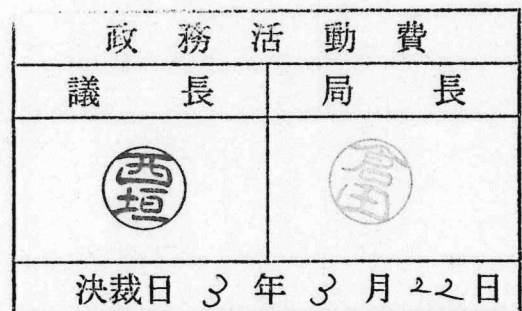 政務活動費
議長 局長
西垣 倉田
決裁日 3年3月22日